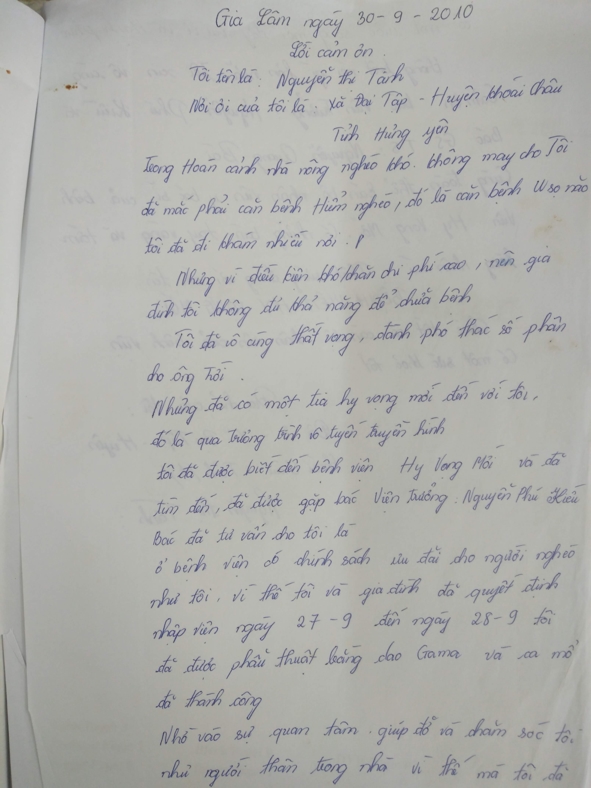 Gia Lâm ngày 30-9-2010
Lời cảm ơn.
Tôi tên là: Nguyễn thị Tành
Nơi ởi của tôi là. Xã Đại Tập - Huyện Khoái Châu
Tỉnh Hưng yên
trong Hoàn cảnh nhà nông nghèo khó. không may cho Tôi
đã mắc phải căn bệnh Hiểm nghèo, đó là căn bệnh U sọ não
tôi đã đi khám nhiều nơi.
Nhưng vì điều kiện khó khăn chi phí cao, nên gia
đình tôi không đủ khả năng để chữa bệnh
Tôi đã vô cùng thất vọng, đành phó thác số phận
cho ông trời.
Nhưng đã có một tia hy vọng mới đến với tôi,
đó là qua trương trình vô tuyến truyền hình
tôi đã được biết đến bệnh viện Hy Vọng Mới và đã
tìm đến, đã được gặp bác Viện trưởng. Nguyễn Phú
Bác đã tư vấn cho tôi là
ở bệnh viện có chính sách ưu đãi cho người nghèo
như tôi, vì thế tôi và gia đình đã quyết định
nhập viện ngày 27-9 đến ngày 28-9 tôi
đã được phẫu thuật bằng dao Gama và ca mổ
đã thành công
Nhờ vào sự quan tâm. giúp đỡ và chăm sóc tôi
như người thân trong nhà vì thế mà tôi đã